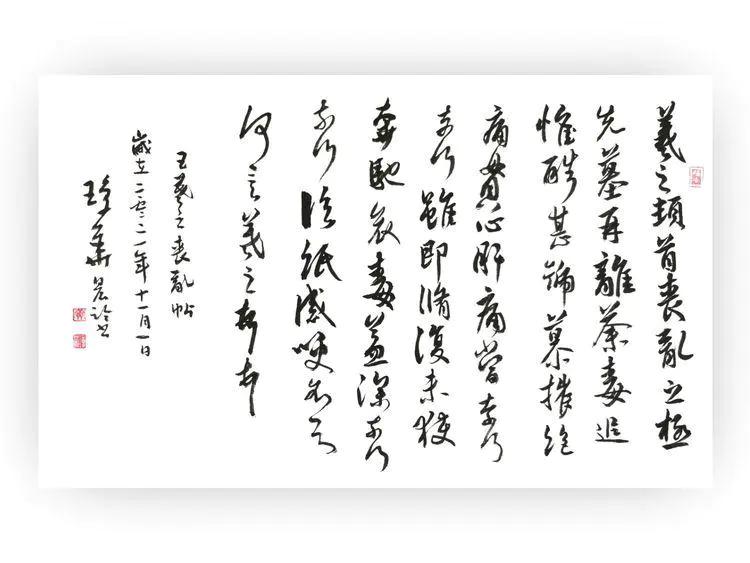 羲之頓首喪亂之極
先墓再離荼毒追
惟酷甚號慕摧絕
痛貫心肝痛當奈何
奈何雖即脩復未獲
奔馳哀毒益深奈何
奈何臨紙感哽不知
何言羲之頓首頓首
王羲之喪亂帖
歲在二〇二一年十一月一日